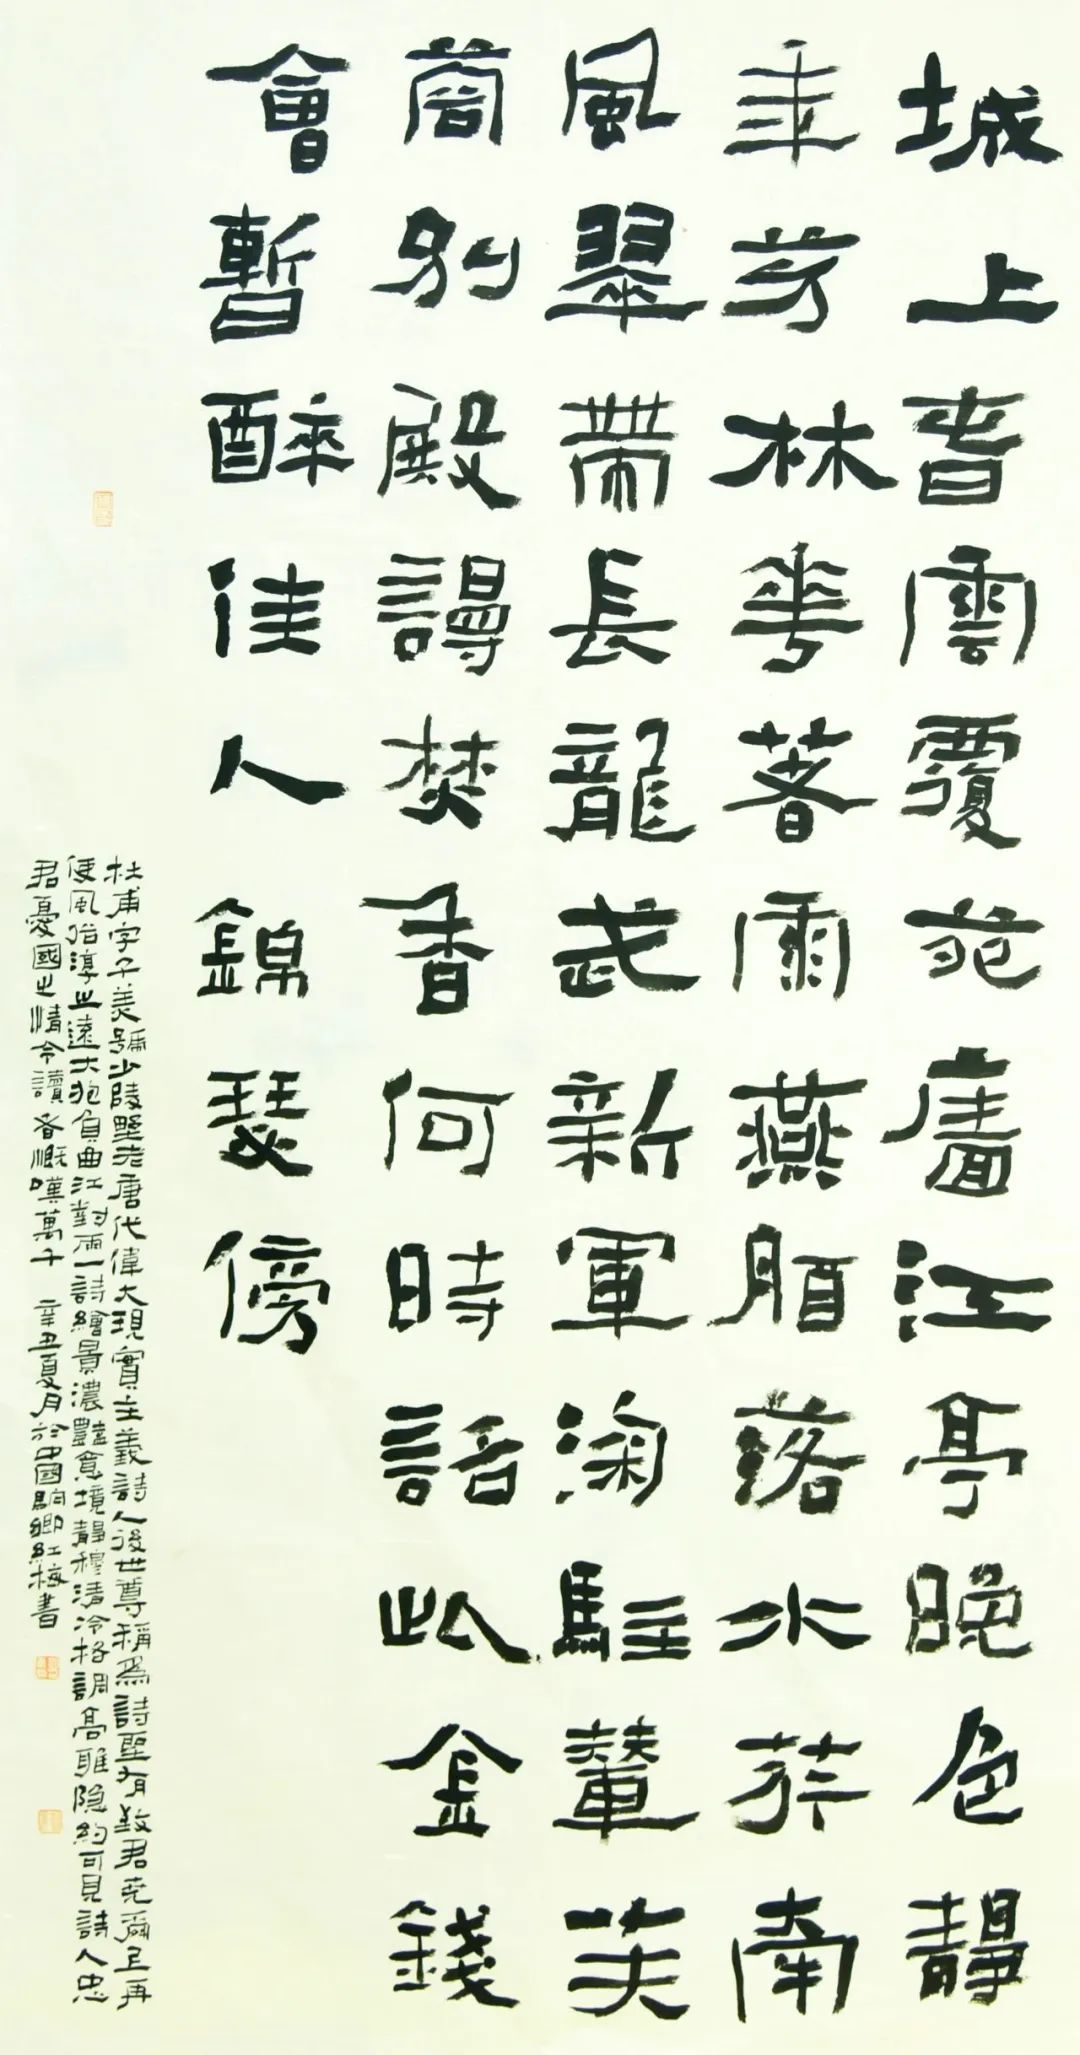 城上春雲覆苑廧江亭晚色靜
年芳林華著雨燕脂落水荇牽
風翠帶長龍武新軍深駐輦芙
蓉別殿謾焚香何時詔此金錢
會暫醉佳人錦瑟傍
杜甫字子美號少陵野老唐代偉大現實主義詩人後世尊稱爲詩聖有致君堯舜上再
使風俗淳之遠大抱負曲江對雨一詩繪景濃豔意境靜穆清冷格調高雅隐約可見詩人忠
君憂國之情今讀者慨嘆萬千 辛丑夏月於中國駉鄉紅梅書